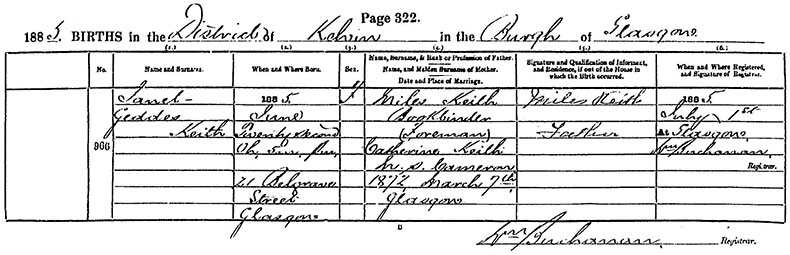 Page 322.
1885. BIRTHS in the District of Kelvin in the Burgh of Glasgow
(1.) (2.) (3.) (4.) (5.) (6.)
No. Name and Surname. When and Where Born. Sex. Name, Surname, & Rank or Profession of Father. Name, and Maiden Surname of Mother. Date and Place of Marriage. Signature and Qualification of Informant, and Residence, if out of the House in which the Birth occurred. When and Where Registered, and Signature of Registrar.
Janet 1885. F Miles Keith Miles Keith 1885.
Geddes June Bookbinder July 1st
Keith Twenty second (Foreman) Father At Glasgow
966 0h. 5m. P.M. Catherine Keith Wm Buchanan
m. s. Cameron Registrar.
21 Belgrave 1872, March 7th
Street Glasgow
Glasgow
Wm Buchanan. Registrar.